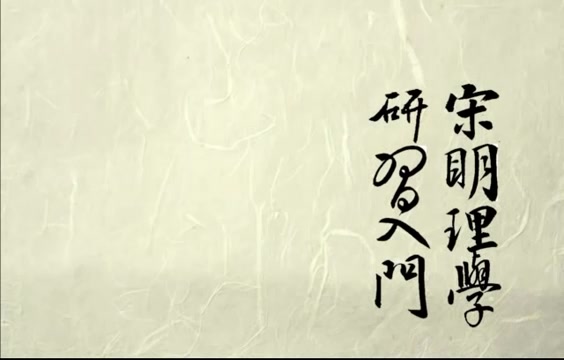 宋明理學
研習入門